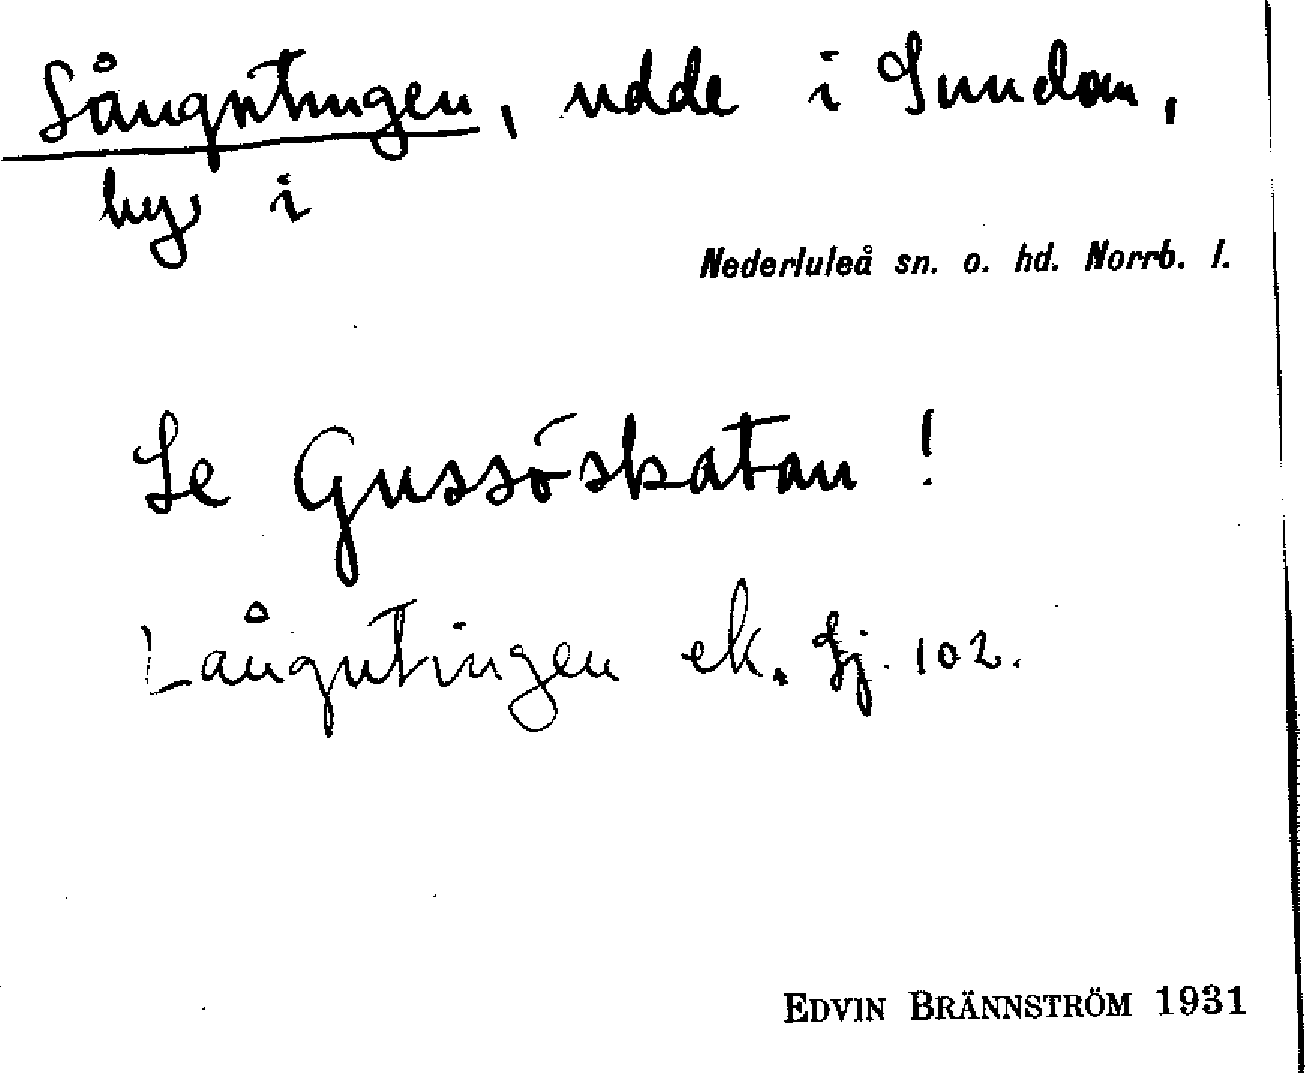 Långntingen, udde i Sundom,
by i
Nederluleå sn. o. hd. Norrb. l.
Se Gussöskatan!
Långntingen ek. 102.
EDVIN BRÄNNSTRÖM 1931